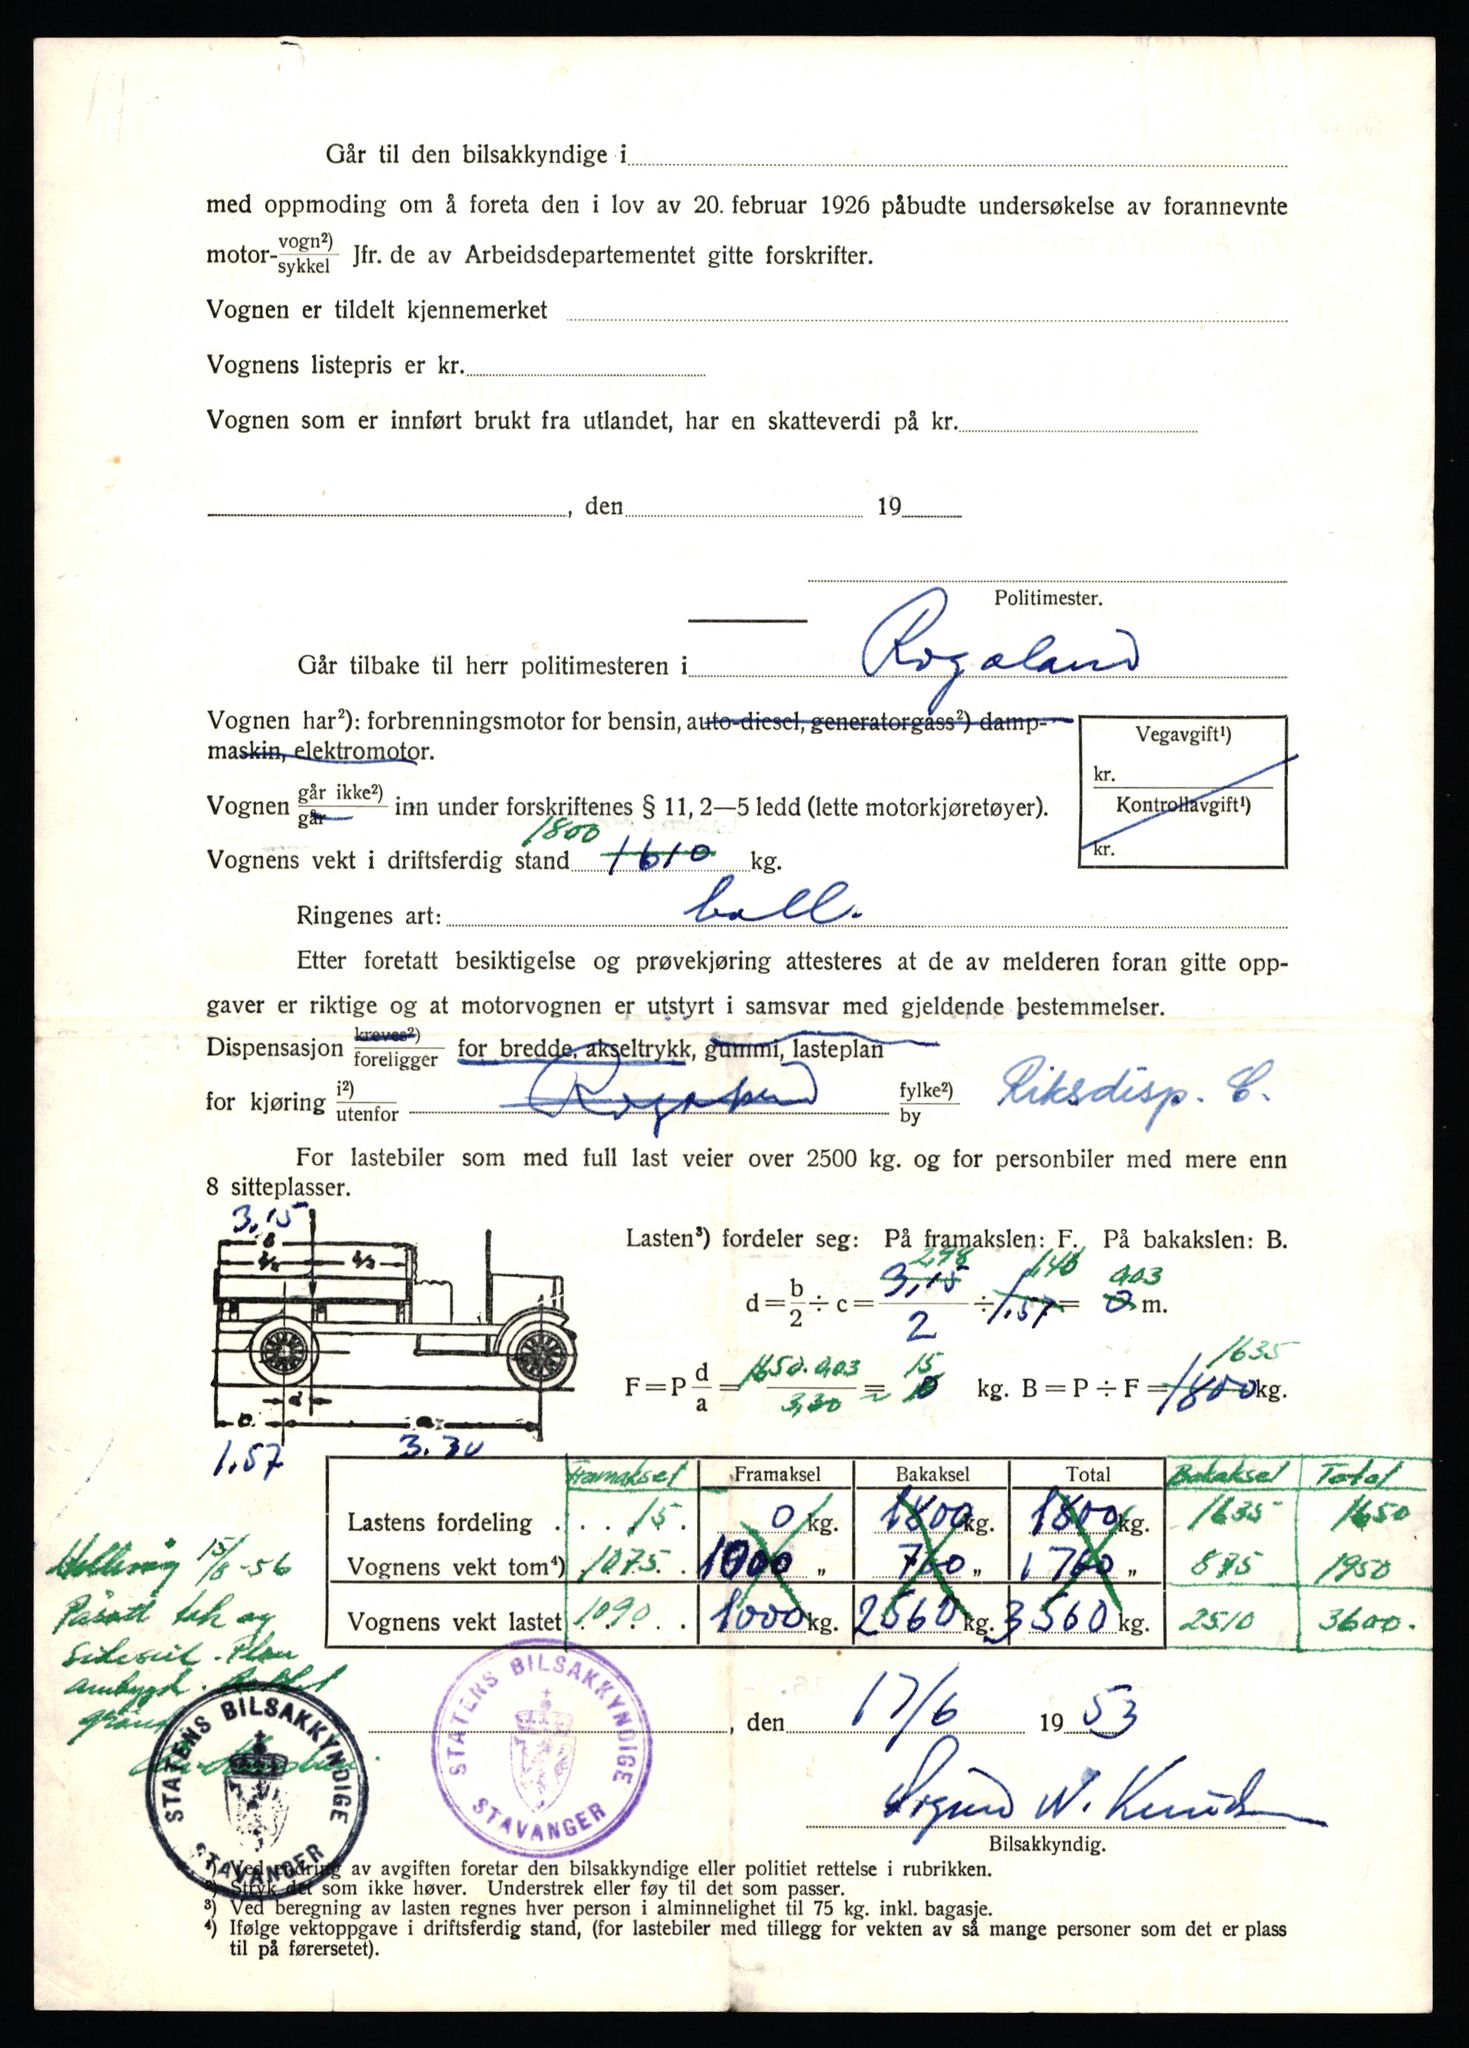 Går til den bilsakkyndige i
med oppmoding om å foreta den i lov av 20. februar 1926 påbudte undersøkelse av forannevnte
motor- vogn²) / sykkel Jfr. de av Arbeidsdepartementet gitte forskrifter.
Vognen er tildelt kjennemerket
Vognens listepris er kr.
Vognen som er innført brukt fra utlandet, har en skatteverdi på kr.
, den 19
Politimester.
Går tilbake til herr politimesteren i Rogaland
Vognen har²): forbrenningsmotor for bensin, auto-diesel, generatorgass²) damp-
maskin, elektromotor.
Vegavgift¹)
kr.
Kontrollavgift¹)
kr.
Vognen går ikke²) / går inn under forskriftenes § 11, 2—5 ledd (lette motorkjøretøyer).
1800
Vognens vekt i driftsferdig stand 1610 kg.
Ringenes art: ball.
Etter foretatt besiktigelse og prøvekjøring attesteres at de av melderen foran gitte opp-
gaver er riktige og at motorvognen er utstyrt i samsvar med gjeldende bestemmelser.
Dispensasjon kreves²) / foreligger for bredde, akseltrykk, gummi, lasteplan
for kjøring i²) / utenfor Rogaland fylke²) / by Riksdisp. C.
For lastebiler som med full last veier over 2500 kg. og for personbiler med mere enn
8 sitteplasser.
3.15
b
b/2 b/2
d
c a
1.57 3.30
Lasten³) fordeler seg: På framakslen: F. På bakakslen: B.
2,98 1,46 0,03
d = b/2 ÷ c = 3,15 / 2 ÷ 1.57 = 0 m.
15 1635
F = P d/a = 1650. 0,03 / 3,30 = 0 kg. B = P ÷ F = 1800 kg.
Framaksel Framaksel Bakaksel Total Bakaksel Total
Lastens fordeling . . . 15 . 0 kg. 1800 kg. 1800 kg. 1635 1650
Vognens vekt tom⁴) 1075 . 1000 „ 760 „ 1760 „ 875 1950
Vognens vekt lastet 1090 . 1000 kg. 2560 kg. 3560 kg. 2510 3600.
15/8-56
Påsatt tak og
, den 17/6 19 53
STATENS BILSAKKYNDIGE
STAVANGER
STATENS BILSAKKYNDIGE
STAVANGER
Sigurd N. Knudsen
Bilsakkyndig.
¹) Ved endring av avgiften foretar den bilsakkyndige eller politiet rettelse i rubrikken.
²) Stryk det som ikke høver. Understrek eller føy til det som passer.
³) Ved beregning av lasten regnes hver person i alminnelighet til 75 kg. inkl. bagasje.
⁴) Ifølge vektoppgave i driftsferdig stand, (for lastebiler med tillegg for vekten av så mange personer som det er plass
til på førersetet).